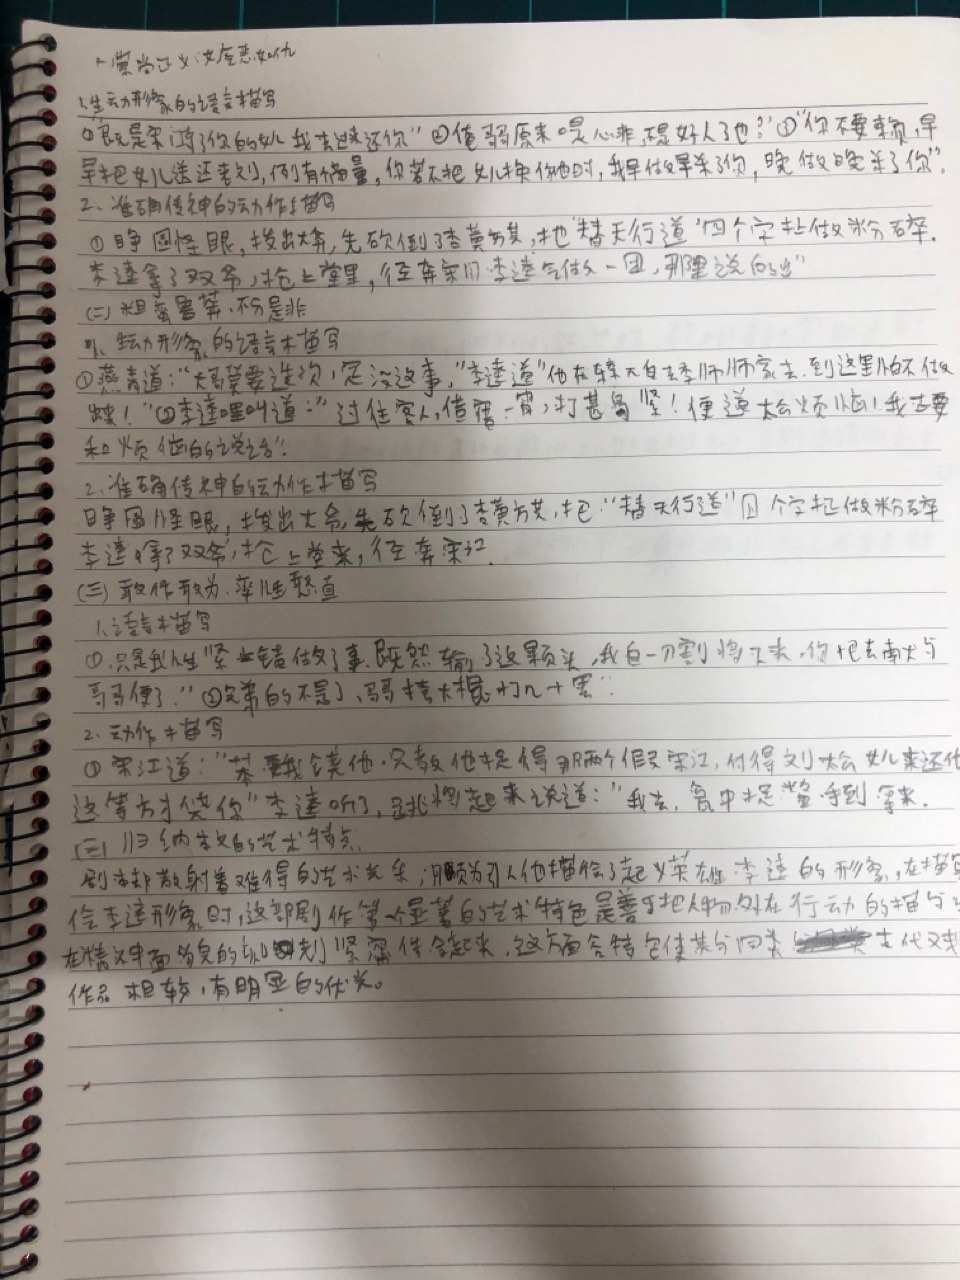 一崇尚正义、疾恶如仇
1、生动形象的语言描写
①"既是宋江了你的女儿我去讨来还你"②俺哥哥原来口是心非,不是好人了也?"③"你不要赖,早
早把女儿送还老刘,倒有商量,你若不把女儿还他时,我早做早杀了你,晚做晚杀了你".
2、准确传神的动作描写
①睁圆怪眼,拔出大斧,先砍倒了杏黄旗,把"替天行道"四个字扯做粉碎.
李逵拿了双斧,抢上堂里,径奔宋江李逵气做一团,那里说的出"
(二)粗鲁莽、不分是非
1、生动形象的语言描写
①燕青道:"大哥莫要造次,定没这事,"李逵道"他在东京兀自去李师师家去.到这里怕不做
出来!"②李逵嘿叫道:"过往客人,借宿一宵,打甚鸟紧!便道太公烦恼!我正要
和烦恼的说话".
2、准确传神的动作描写
睁圆怪眼,拔出大斧,先砍倒了杏黄旗,把"替天行道"四个字扯做粉碎
李逵拿了双斧,抢上堂来,径奔宋江.
(三)敢作敢为、率性憨直
1、语言描写
①.只是我性紧些错做了事.既然输了这颗头,我自一刀割将下来,你把去献与
哥哥便了."②兄弟的不是了、哥哥拣大棍打几十罢".
2、动作描写
①宋江道:"若要我饶他.只教他捉得那两个假宋江,讨得刘太公女儿来还他
这等方才饶你"李逵听了,跳将起来说道:"我去,瓮中捉鳖手到拿来.
(三)归纳本文的艺术特点
剧本却散射着难得的艺术光采,颇为引人他描绘了起义英雄李逵的形象,在描写
绘李逵形象时,这部剧作第一个显著的艺术特色是善于把人物外在行动的描写与
内在精神面貌的刻划紧密结合起来,这方面的特色使其与同类古代戏
作品相较,有明显的优长。